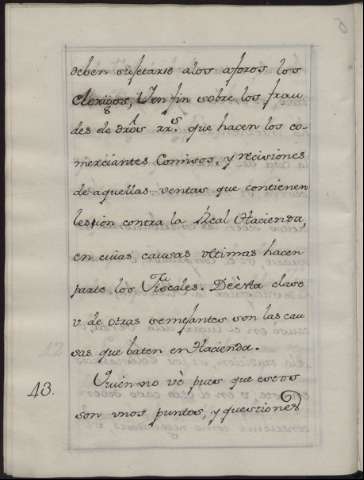 deben sugetarse alos aforos los
Clerigos, Y en fin sobre los frau
des de dros rrs. que hacen los co-
merciantes Comisos, y recisiones
de aquellas ventas que contienen
lesion contra la Real Hacienda,
en cuias causas ultimas hacen
parte los Fiscales. De esta clase
v de otras semejantes son las cau
sas que baten en Hacienda.
43. Quien no vè pues que estos
son unos puntos, y questiones